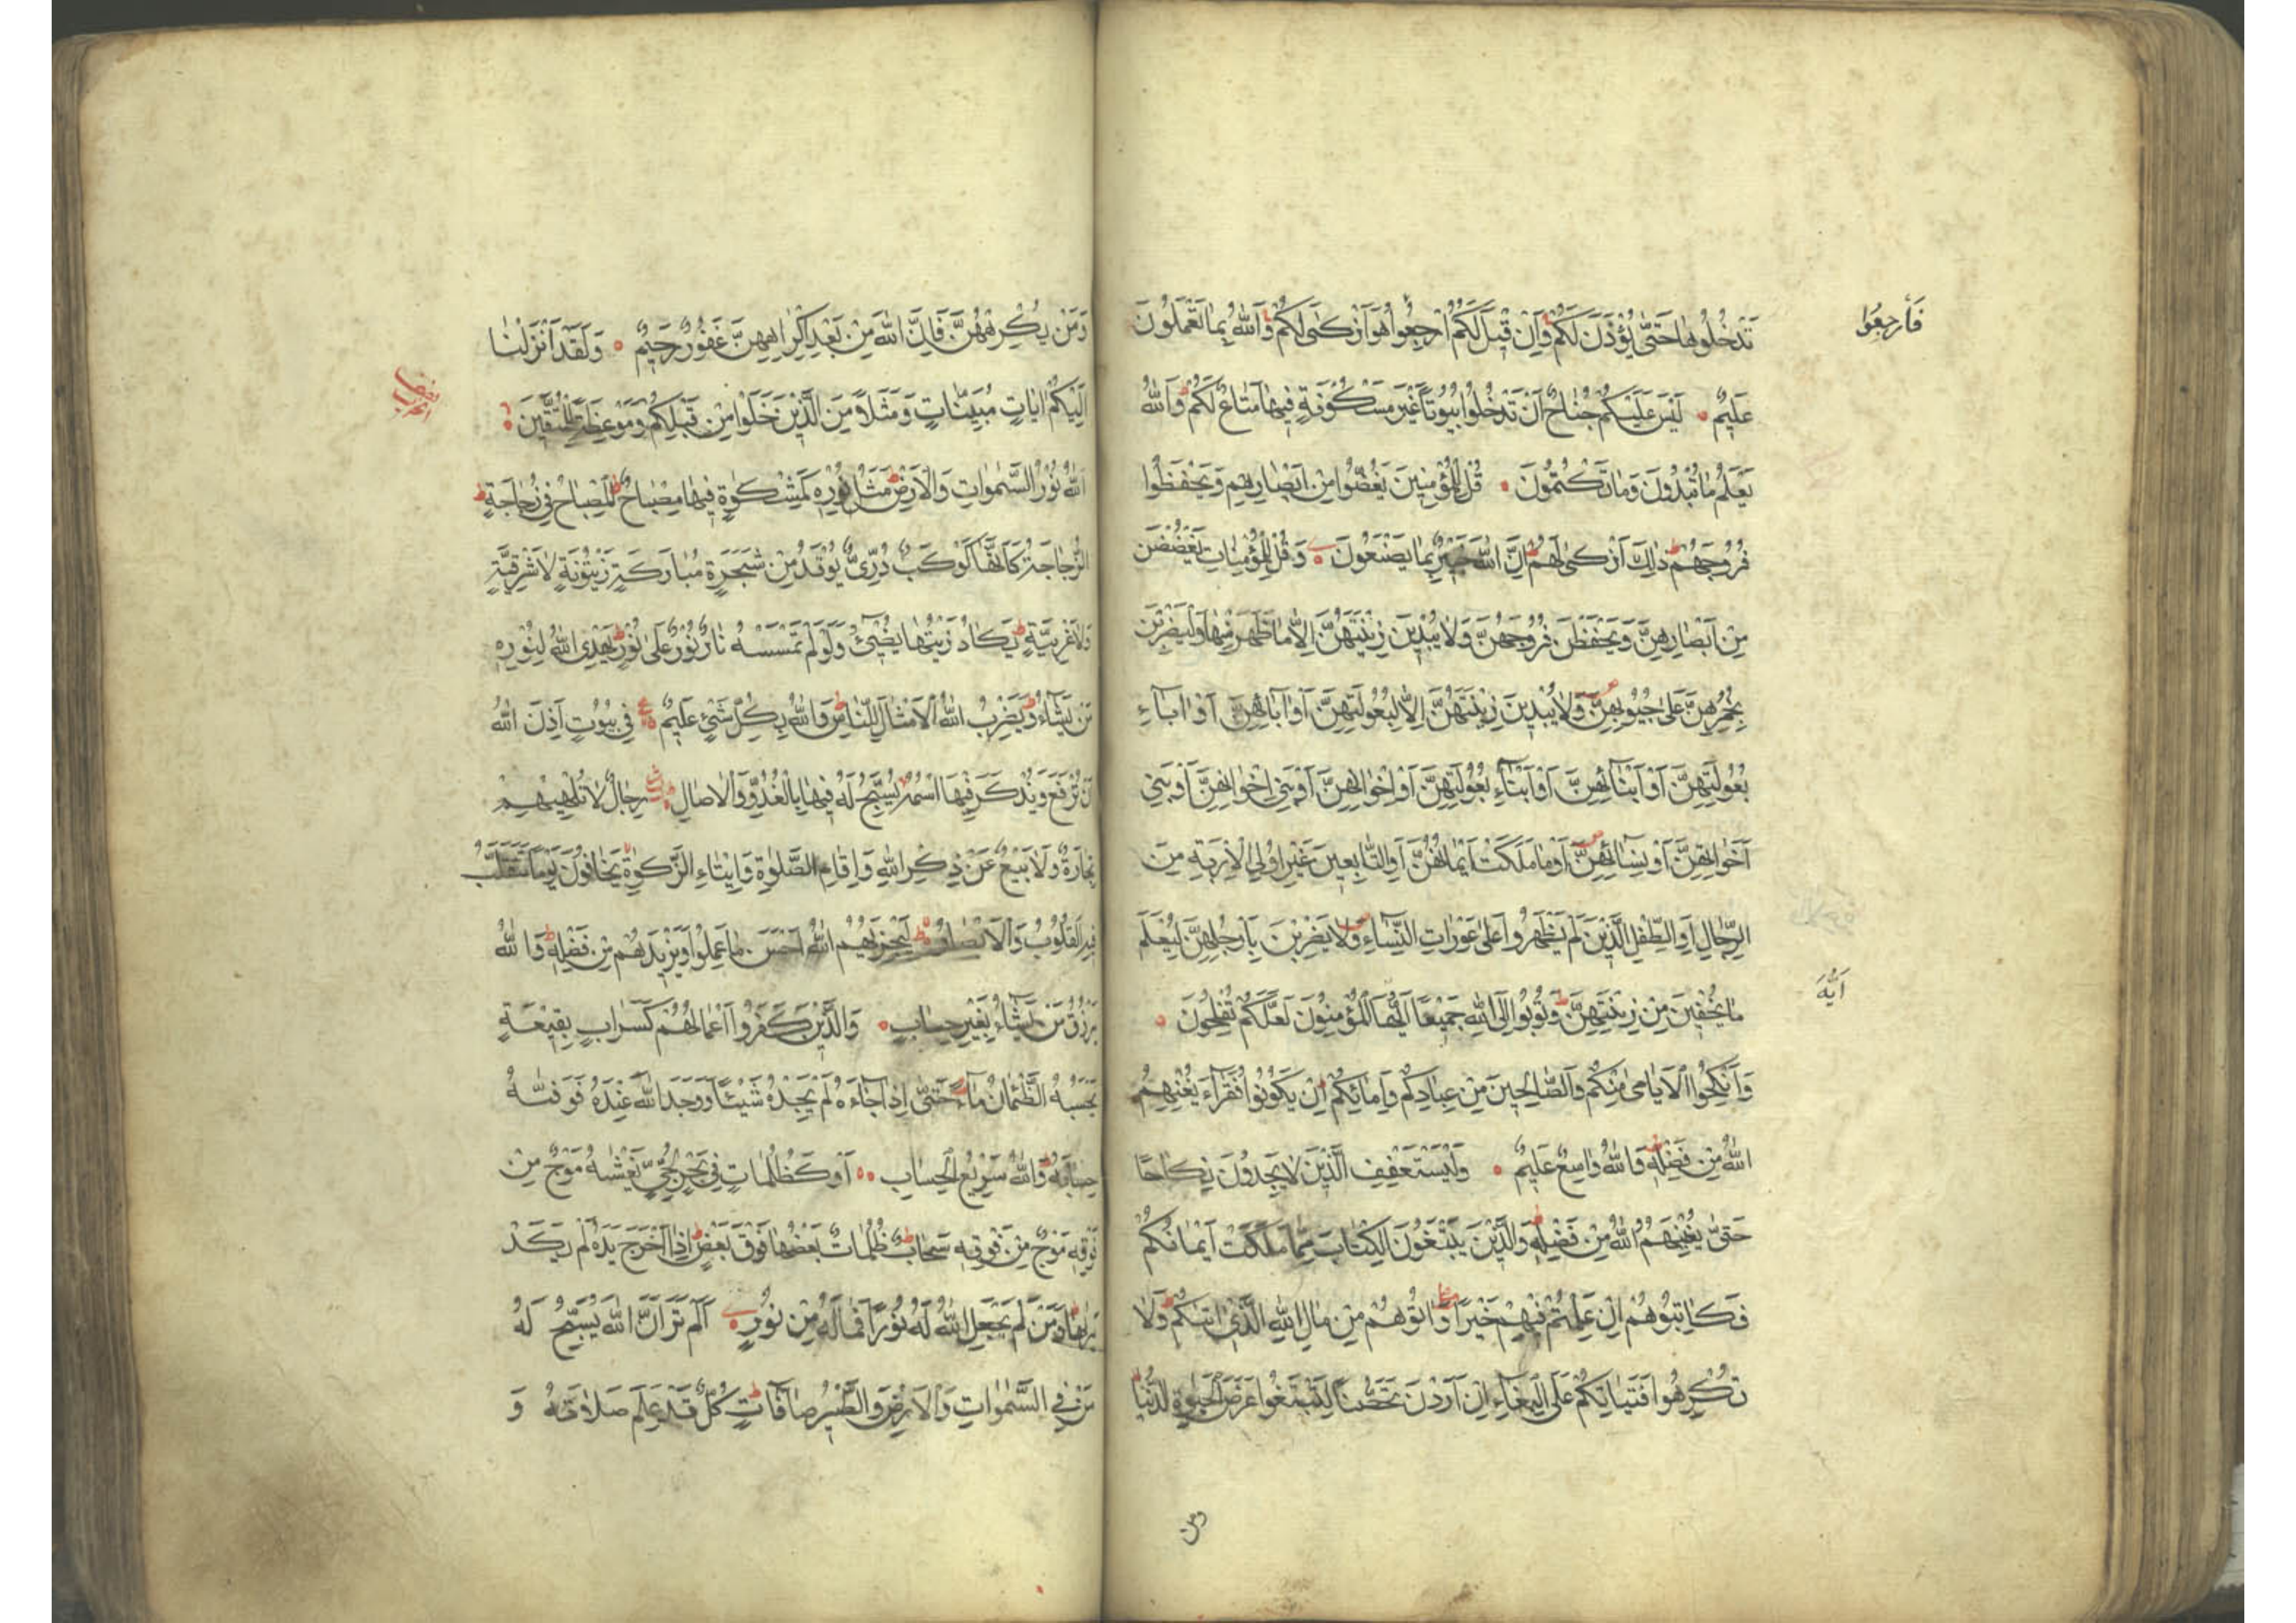 فَارْجِعُوا
تَدْخُلُوهَا حَتّٰى يُؤْذَنَ لَكُمْ وَاِنْ قِيلَ لَكُمُ ارْجِعُوا هُوَ اَزْكٰى لَكُمْ وَاللّٰهُ بِمَا تَعْمَلُونَ
عَلِيمٌ لَيْسَ عَلَيْكُمْ جُنَاحٌ اَنْ تَدْخُلُوا بُيُوتًا غَيْرَ مَسْكُونَةٍ فِيهَا مَتَاعٌ لَكُمْ وَاللّٰهُ
يَعْلَمُ مَا تُبْدُونَ وَمَا تَكْتُمُونَ قُلْ لِلْمُؤْمِنِينَ يَغُضُّوا مِنْ اَبْصَارِهِمْ وَيَحْفَظُوا
فُرُوجَهُمْ ذٰلِكَ اَزْكٰى لَهُمْ اِنَّ اللّٰهَ خَبِيرٌ بِمَا يَصْنَعُونَ وَقُلْ لِلْمُؤْمِنَاتِ يَغْضُضْنَ
مِنْ اَبْصَارِهِنَّ وَيَحْفَظْنَ فُرُوجَهُنَّ وَلَا يُبْدِينَ زِينَتَهُنَّ اِلَّا مَا ظَهَرَ مِنْهَا وَلْيَضْرِبْنَ
بِخُمُرِهِنَّ عَلٰى جُيُوبِهِنَّ وَلَا يُبْدِينَ زِينَتَهُنَّ اِلَّا لِبُعُولَتِهِنَّ اَوْ اٰبَائِهِنَّ اَوْ اٰبَاءِ
بُعُولَتِهِنَّ اَوْ اَبْنَائِهِنَّ اَوْ اَبْنَاءِ بُعُولَتِهِنَّ اَوْ اِخْوَانِهِنَّ اَوْ بَنِي اِخْوَانِهِنَّ اَوْ بَنِي
اَخَوَاتِهِنَّ اَوْ نِسَائِهِنَّ اَوْ مَا مَلَكَتْ اَيْمَانُهُنَّ اَوِ التَّابِعِينَ غَيْرِ اُولِي الْاِرْبَةِ مِنَ
الرِّجَالِ اَوِ الطِّفْلِ الَّذِينَ لَمْ يَظْهَرُوا عَلٰى عَوْرَاتِ النِّسَاءِ وَلَا يَضْرِبْنَ بِاَرْجُلِهِنَّ لِيُعْلَمَ
اَيُّهَ
مَا يُخْفِينَ مِنْ زِينَتِهِنَّ وَتُوبُوا اِلَى اللّٰهِ جَمِيعًا اَيُّهَا الْمُؤْمِنُونَ لَعَلَّكُمْ تُفْلِحُونَ
وَاَنْكِحُوا الْاَيَامٰى مِنْكُمْ وَالصَّالِحِينَ مِنْ عِبَادِكُمْ وَاِمَائِكُمْ اِنْ يَكُونُوا فُقَرَاءَ يُغْنِهِمُ
اللّٰهُ مِنْ فَضْلِهِ وَاللّٰهُ وَاسِعٌ عَلِيمٌ وَلْيَسْتَعْفِفِ الَّذِينَ لَا يَجِدُونَ نِكَاحًا
حَتّٰى يُغْنِيَهُمُ اللّٰهُ مِنْ فَضْلِهِ وَالَّذِينَ يَبْتَغُونَ الْكِتَابَ مِمَّا مَلَكَتْ اَيْمَانُكُمْ
فَكَاتِبُوهُمْ اِنْ عَلِمْتُمْ فِيهِمْ خَيْرًا وَاٰتُوهُمْ مِنْ مَالِ اللّٰهِ الَّذِي اٰتٰيكُمْ وَلَا
تُكْرِهُوا فَتَيَاتِكُمْ عَلَى الْبِغَاءِ اِنْ اَرَدْنَ تَحَصُّنًا لِتَبْتَغُوا عَرَضَ الْحَيٰوةِ الدُّنْيَا
ومن
وَمَنْ يُكْرِهْهُنَّ فَاِنَّ اللّٰهَ مِنْ بَعْدِ اِكْرَاهِهِنَّ غَفُورٌ رَحِيمٌ وَلَقَدْ اَنْزَلْنَا
اِلَيْكُمْ اٰيَاتٍ مُبَيِّنَاتٍ وَمَثَلًا مِنَ الَّذِينَ خَلَوْا مِنْ قَبْلِكُمْ وَمَوْعِظَةً لِلْمُتَّقِينَ
اَللّٰهُ نُورُ السَّمٰوَاتِ وَالْاَرْضِ مَثَلُ نُورِهِ كَمِشْكٰوةٍ فِيهَا مِصْبَاحٌ اَلْمِصْبَاحُ فِي زُجَاجَةٍ
الزُّجَاجَةُ كَاَنَّهَا كَوْكَبٌ دُرِّيٌّ يُوقَدُ مِنْ شَجَرَةٍ مُبَارَكَةٍ زَيْتُونَةٍ لَا شَرْقِيَّةٍ
وَلَا غَرْبِيَّةٍ يَكَادُ زَيْتُهَا يُضِيءُ وَلَوْ لَمْ تَمْسَسْهُ نَارٌ نُورٌ عَلٰى نُورٍ يَهْدِي اللّٰهُ لِنُورِهِ
مَنْ يَشَاءُ وَيَضْرِبُ اللّٰهُ الْاَمْثَالَ لِلنَّاسِ وَاللّٰهُ بِكُلِّ شَيْءٍ عَلِيمٌ فِي بُيُوتٍ اَذِنَ اللّٰهُ
اَنْ تُرْفَعَ وَيُذْكَرَ فِيهَا اسْمُهُ يُسَبِّحُ لَهُ فِيهَا بِالْغُدُوِّ وَالْاٰصَالِ رِجَالٌ لَا تُلْهِيهِمْ
تِجَارَةٌ وَلَا بَيْعٌ عَنْ ذِكْرِ اللّٰهِ وَاِقَامِ الصَّلٰوةِ وَاِيتَاءِ الزَّكٰوةِ يَخَافُونَ يَوْمًا تَتَقَلَّبُ
فِيهِ الْقُلُوبُ وَالْاَبْصَارُ لِيَجْزِيَهُمُ اللّٰهُ اَحْسَنَ مَا عَمِلُوا وَيَزِيدَهُمْ مِنْ فَضْلِهِ وَاللّٰهُ
يَرْزُقُ مَنْ يَشَاءُ بِغَيْرِ حِسَابٍ وَالَّذِينَ كَفَرُوا اَعْمَالُهُمْ كَسَرَابٍ بِقِيعَةٍ
يَحْسَبُهُ الظَّمْاٰنُ مَاءً حَتّٰى اِذَا جَاءَهُ لَمْ يَجِدْهُ شَيْئًا وَوَجَدَ اللّٰهَ عِنْدَهُ فَوَفّٰيهُ
حِسَابَهُ وَاللّٰهُ سَرِيعُ الْحِسَابِ اَوْ كَظُلُمَاتٍ فِي بَحْرٍ لُجِّيٍّ يَغْشٰيهُ مَوْجٌ مِنْ
فَوْقِهِ مَوْجٌ مِنْ فَوْقِهِ سَحَابٌ ظُلُمَاتٌ بَعْضُهَا فَوْقَ بَعْضٍ اِذَا اَخْرَجَ يَدَهُ لَمْ يَكَدْ
يَرٰيهَا وَمَنْ لَمْ يَجْعَلِ اللّٰهُ لَهُ نُورًا فَمَا لَهُ مِنْ نُورٍ اَلَمْ تَرَ اَنَّ اللّٰهَ يُسَبِّحُ لَهُ
مَنْ فِي السَّمٰوَاتِ وَالْاَرْضِ وَالطَّيْرُ صَافَّاتٍ كُلٌّ قَدْ عَلِمَ صَلَاتَهُ وَ